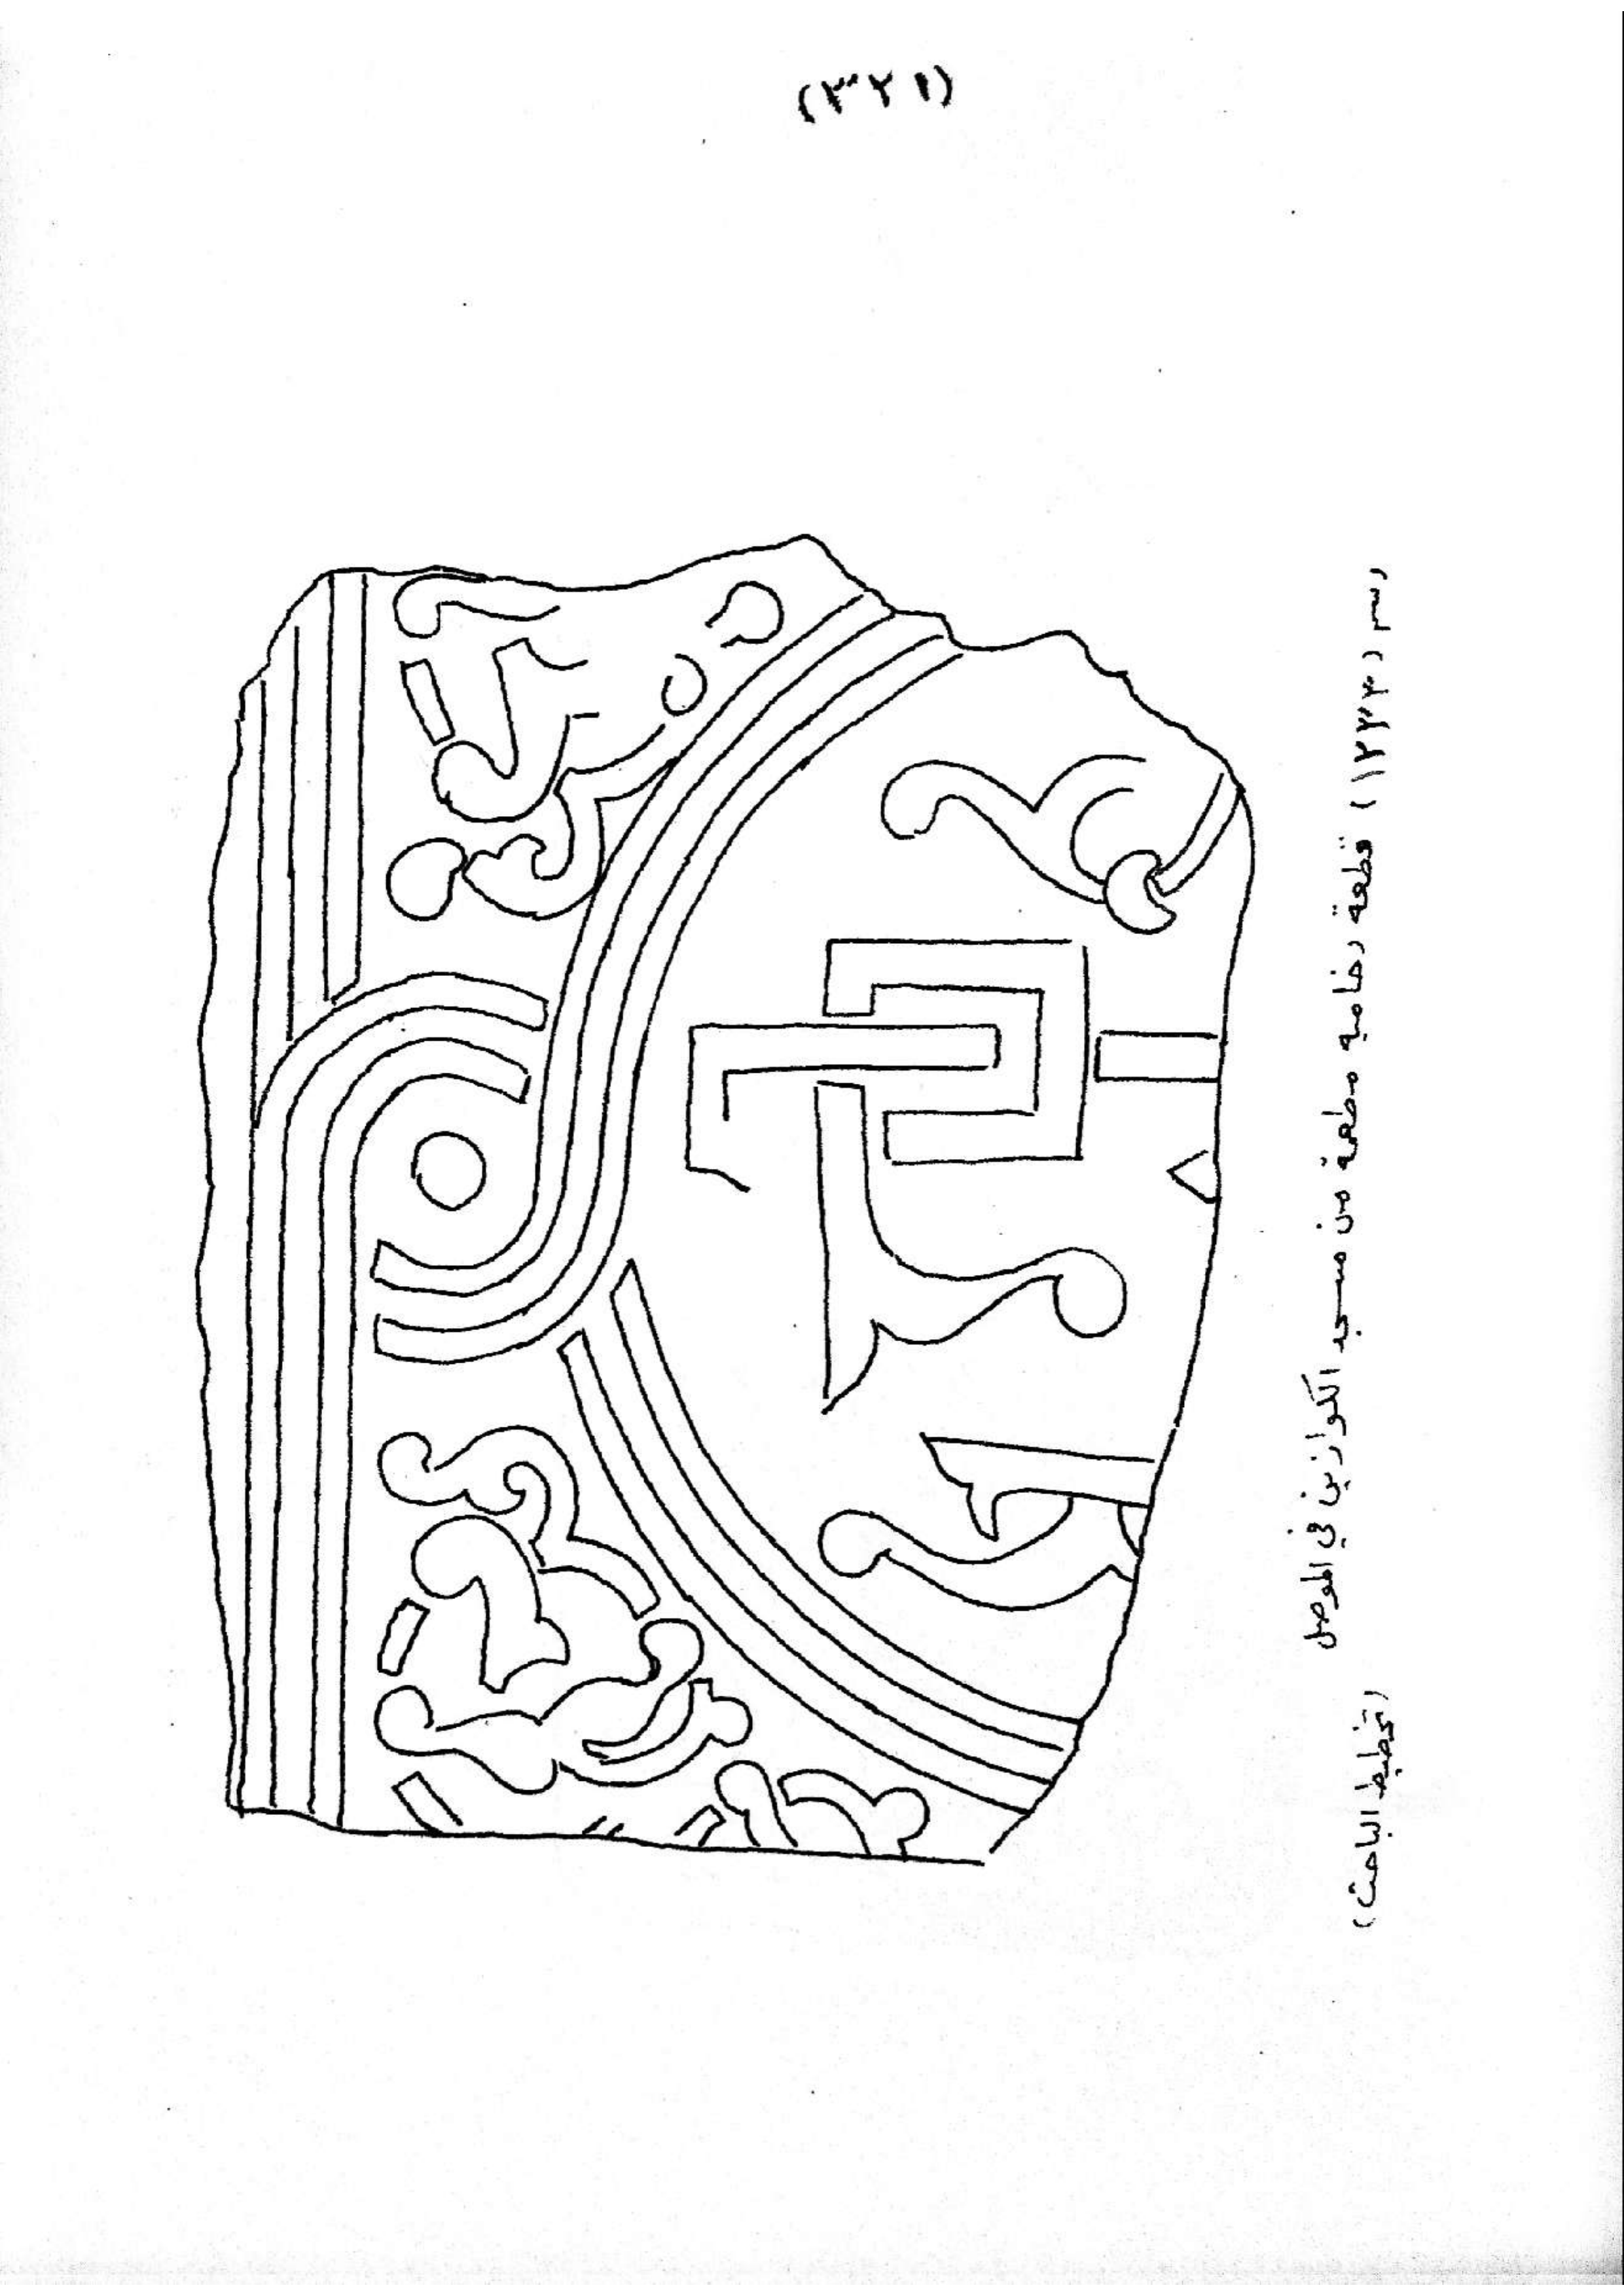 (٣٢١)
رسم (١٢٣٣) قطعة رخاميه مطعمة من مسجد الكوازين في الموصل
(تخطيط الباحث)